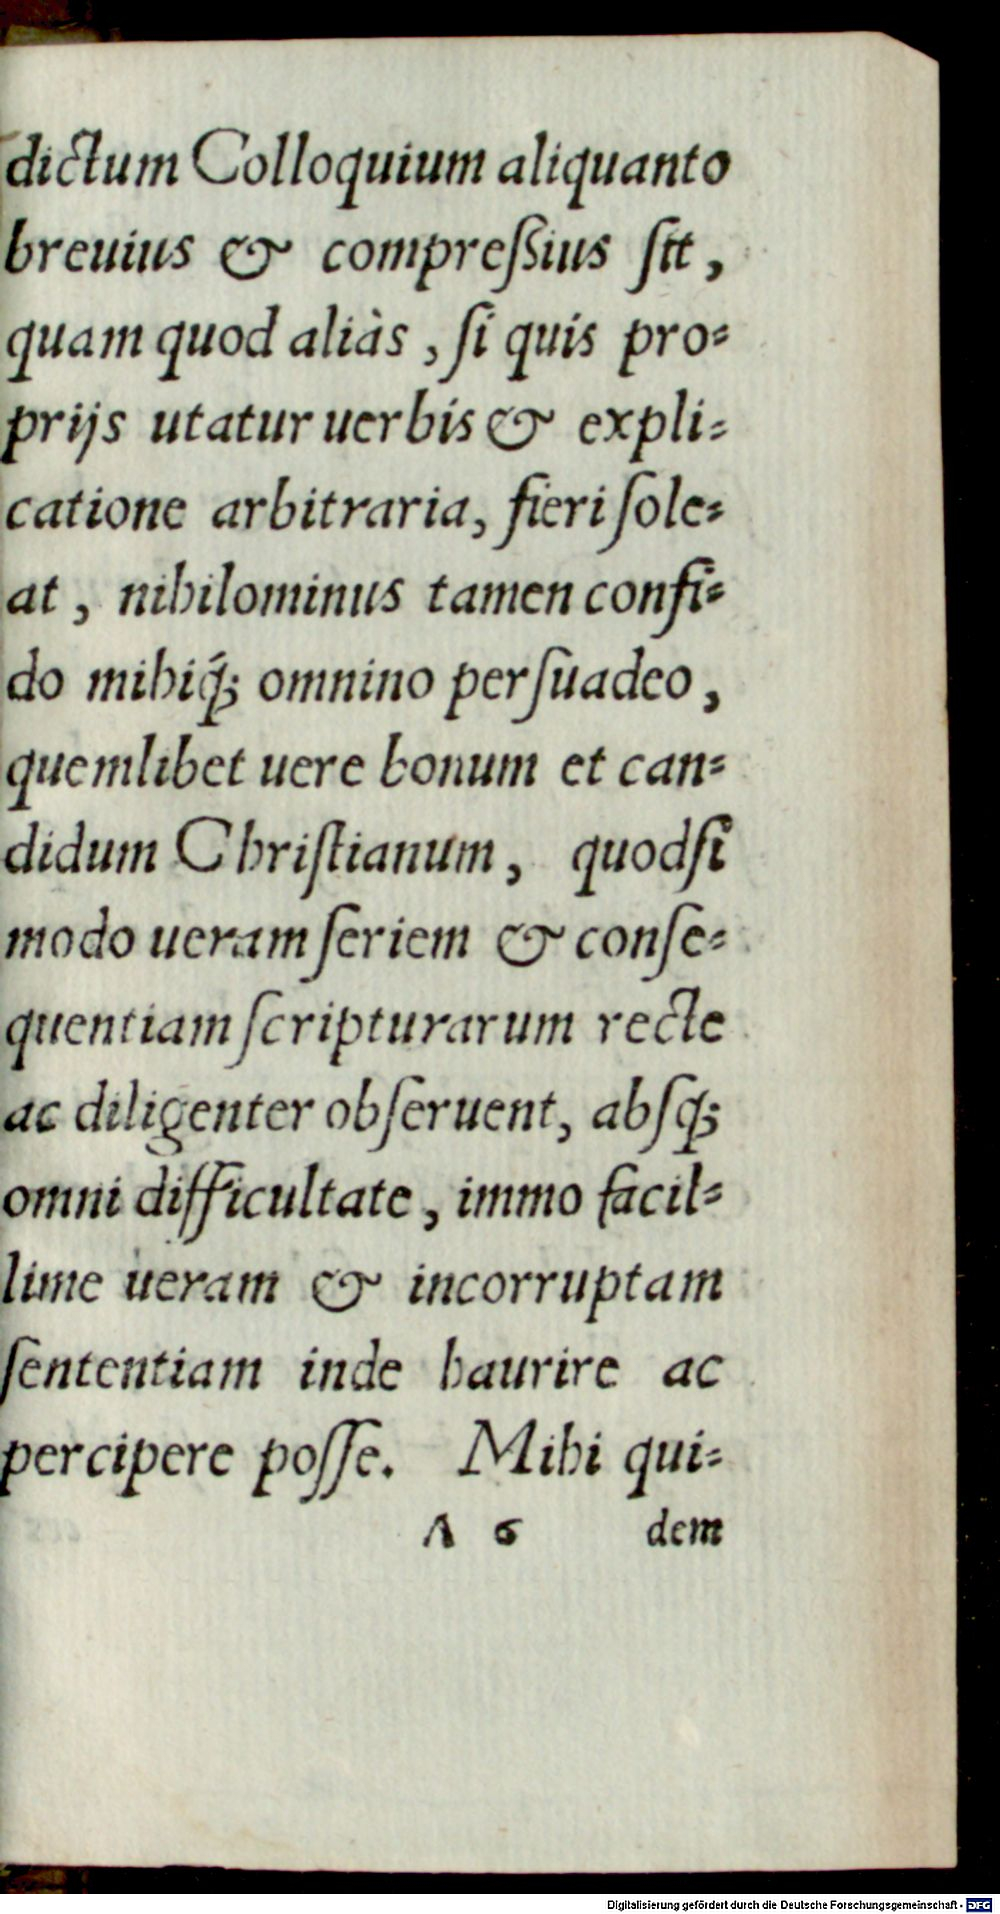 dictum Colloquium aliquanto
breuius & compreſsius ſit,
quam quod aliàs, ſi quis pro⸗
prijs utatur uerbis & expli⸗
catione arbitraria, fieri ſole⸗
at, nihilominus tamen confi⸗
do mihiq́; omnino perſuadeo,
quemlibet uere bonum et can⸗
didum Chriſtianum, quodſi
modo ueram ſeriem & conſe⸗
quentiam ſcripturarum recte
ac diligenter obſeruent, abſq;
omni difficultate, immo facil⸗
lime ueram & incorruptam
ſententiam inde haurire ac
percipere poſſe. Mihi qui⸗
A 6 dem
Digitalisierung gefördert durch die Deutsche Forschungsgemeinschaft - DFG